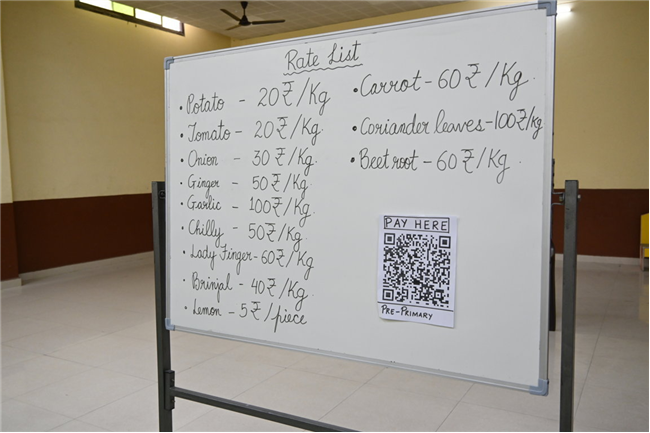 Rate List
• Potato - 20₹/Kg
• Tomato - 20₹/Kg.
• Onion - 30₹/Kg.
• Ginger - 50₹/Kg.
• Garlic - 100₹/Kg.
• Chilly - 50₹/Kg.
• Lady Finger - 60₹/Kg
• Brinjal - 40₹/Kg.
• Lemon - 5₹/piece
• Carrot - 60₹/Kg.
• Coriander leaves - 100₹/kg
• Beetroot - 60₹/Kg.
PAY HERE
PRE-PRIMARY